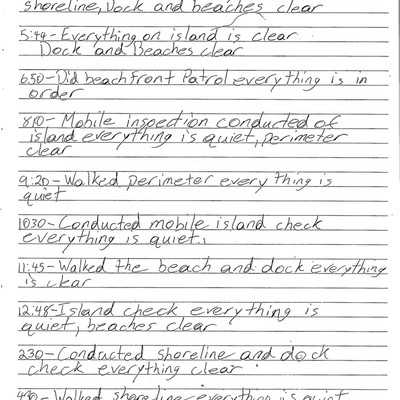 shoreline, Dock and beaches clear
5:44-Everything on island is clear
Dock and Beaches clear
650-Did beachfront Patrol everything is in
order
810-Mobile inspection conducted of
island everything is quiet, perimeter
clear
9:20-Walked perimeter every thing is
quiet
1030-Conducted mobile island check
everything is quiet.
11:45-Walked the beach and dock everything
is clear
12:48-Island check everything is
quiet, beaches clear
230-Conducted shoreline and dock
check everything clear
430-Walked shoreline everything is quiet